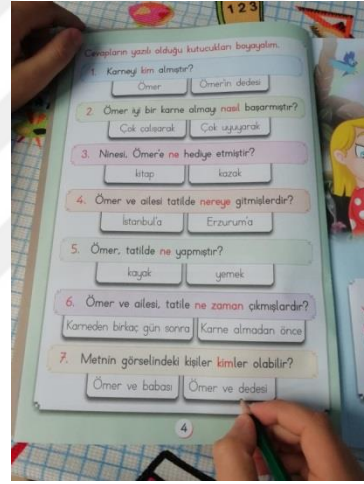 1 2 3
Cevapların yazılı olduğu kutucukları boyayalım.
1. Karneyi kim almıştır?
Ömer Ömer'in dedesi
2. Ömer iyi bir karne almayı nasıl başarmıştır?
Çok çalışarak Çok uyuyarak
3. Ninesi, Ömer'e ne hediye etmiştir?
kitap kazak
4. Ömer ve ailesi tatilde nereye gitmişlerdir?
İstanbul'a Erzurum'a
5. Ömer, tatilde ne yapmıştır?
kayak yemek
6. Ömer ve ailesi, tatile ne zaman çıkmışlardır?
Karneden birkaç gün sonra Karne almadan önce
7. Metnin görselindeki kişiler kimler olabilir?
Ömer ve babası Ömer ve dedesi
4